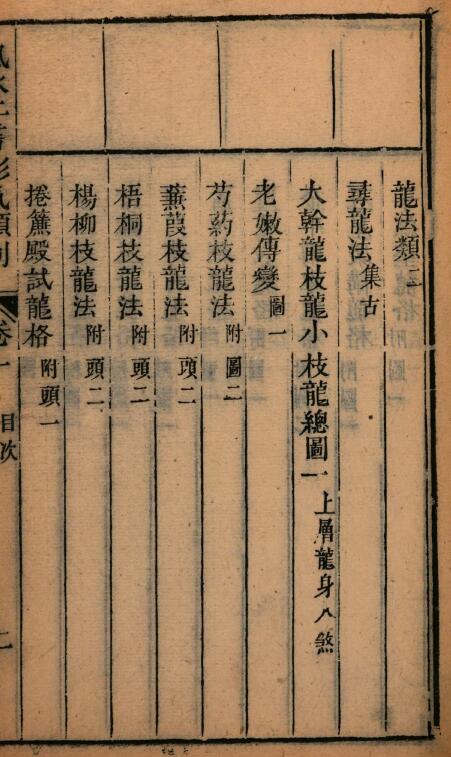 龍法類二
尋龍法集古
大幹龍枝龍小枝龍總圖一上層龍身八煞
老嫩傳變圖一
芍葯枝龍法附圖二
蒹葭枝龍法附頭二
梧桐枝龍法附頭二
楊柳枝龍法附頭二
捲簾殿試龍格附頭一
卷一 目次 二